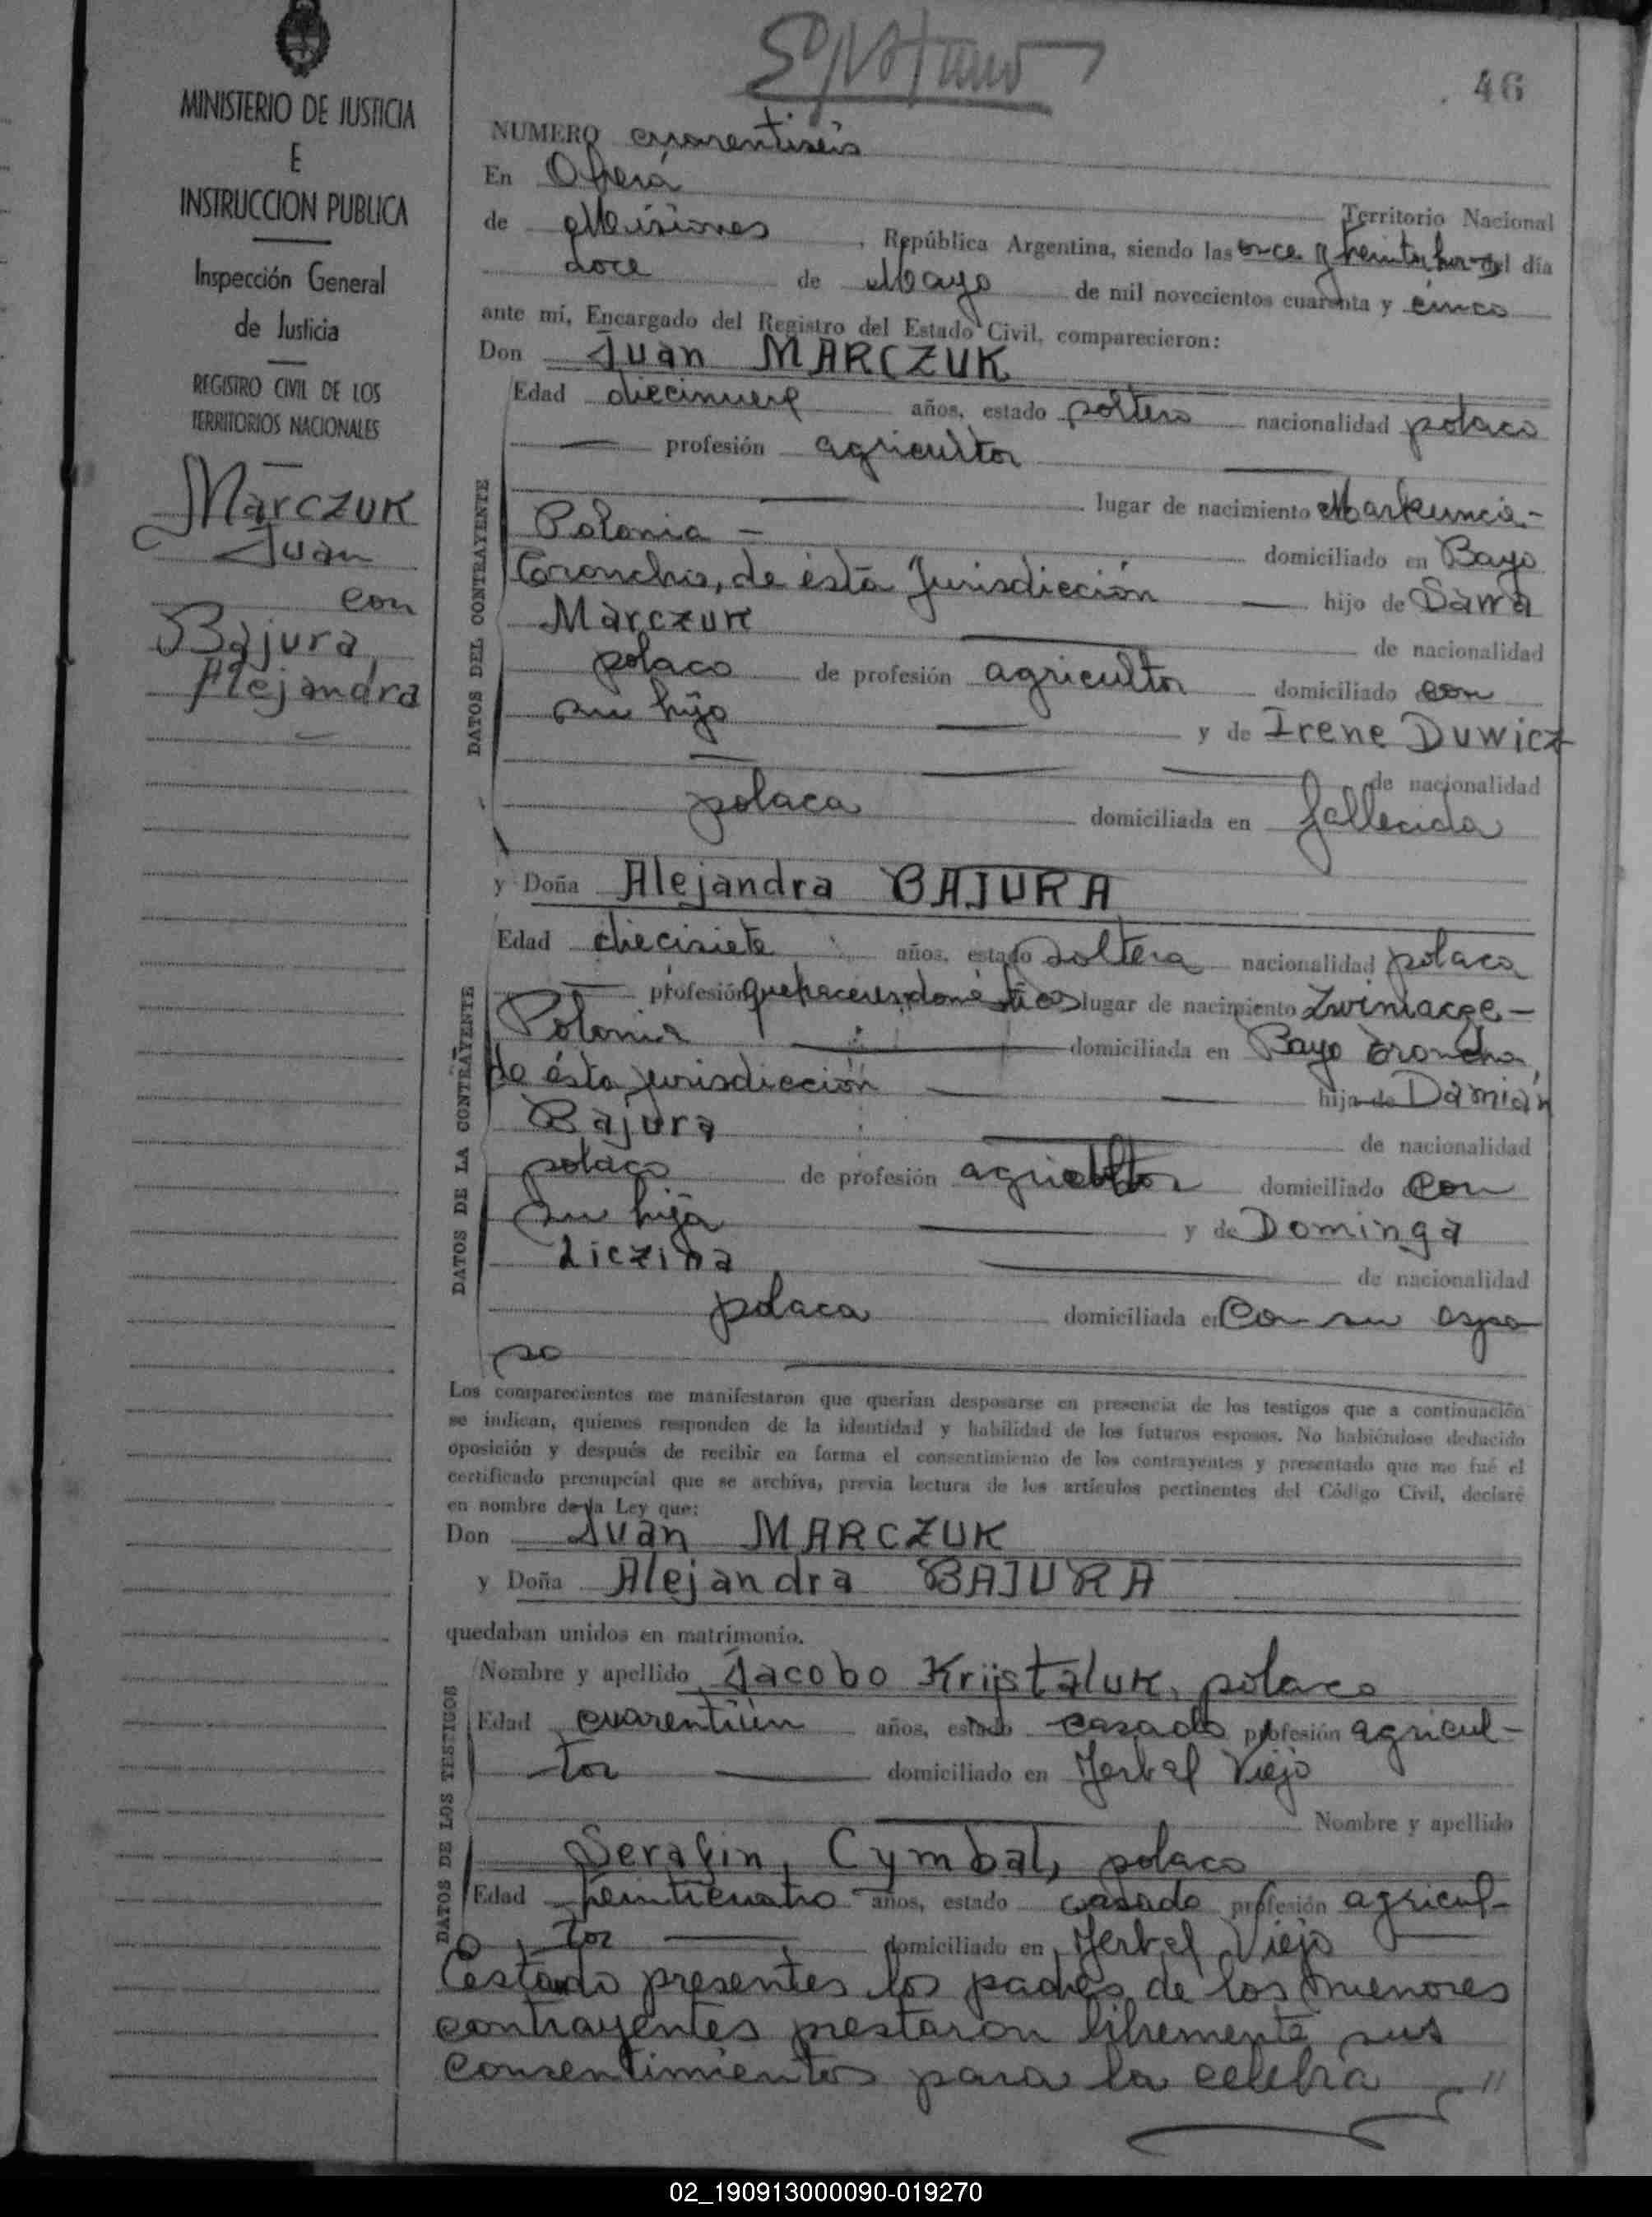 MINISTERIO DE JUSTICIA
E
INSTRUCCION PUBLICA
Inspección General
de Justicia
REGISTRO CIVIL DE LOS
TERRITORIOS NACIONALES
Marczuk
Juan
con
Bajura,
Alejandra
46
NUMERO cuarentiseis
En Oberá
Territorio Nacional
de Misiones, República Argentina, siendo las once y treinta horas del día
doce de Mayo de mil novecientos cuarenta y cinco
ante mí, Encargado del Registro del Estado Civil, comparecieron:
Don Juan MARCZUK
DATOS DEL CONTRAYENTE
Edad diecinueve años, estado soltero nacionalidad polaco
— profesión agricultor —
— lugar de nacimiento
Polonia — domiciliado en Bayo
Troncho, de ésta Jurisdicción — hijo de Sawa
Marczuk — de nacionalidad
polaco de profesión agricultor domiciliado con
su hijo — y de Irene Duwicz
— de nacionalidad
polaca domiciliada en fallecida
y Doña Alejandra BAJURA
DATOS DE LA CONTRAYENTE
Edad diecisiete años, estado soltera nacionalidad polaca
— profesión quehaceres domésticos lugar de nacimiento
Polonia — domiciliada en Bayo Troncho,
de ésta jurisdicción — hija de Damián
Bajura — de nacionalidad
polaco de profesión agricultor domiciliado con
su hija — y de Dominga
Liczina — de nacionalidad
polaca domiciliada en con su espo
so —
Los comparecientes me manifestaron que querían desposarse en presencia de los testigos que a continuación
se indican, quienes responden de la identidad y habilidad de los futuros esposos. No habiéndose deducido
oposición y después de recibir en forma el consentimiento de los contrayentes y presentado que me fué el
certificado prenupcial que se archiva, previa lectura de los artículos pertinentes del Código Civil, declaré
en nombre de la Ley que:
Don Juan MARCZUK
y Doña Alejandra BAJURA
quedaban unidos en matrimonio.
DATOS DE LOS TESTIGOS
Nombre y apellido Jacobo Krijstaluk, polaco
Edad cuarentiún años, estado casado profesión agricul-
tor — domiciliado en Yerbal Viejo
Nombre y apellido
Serafin, Cymbal, polaco
Edad años, estado casado profesión agricul-
tor — domiciliado en Yerbal Viejo —
presentes los padres de los menores
contrayentes prestaron libremente sus
consentimientos para la celebra //
02_190913000090-019270